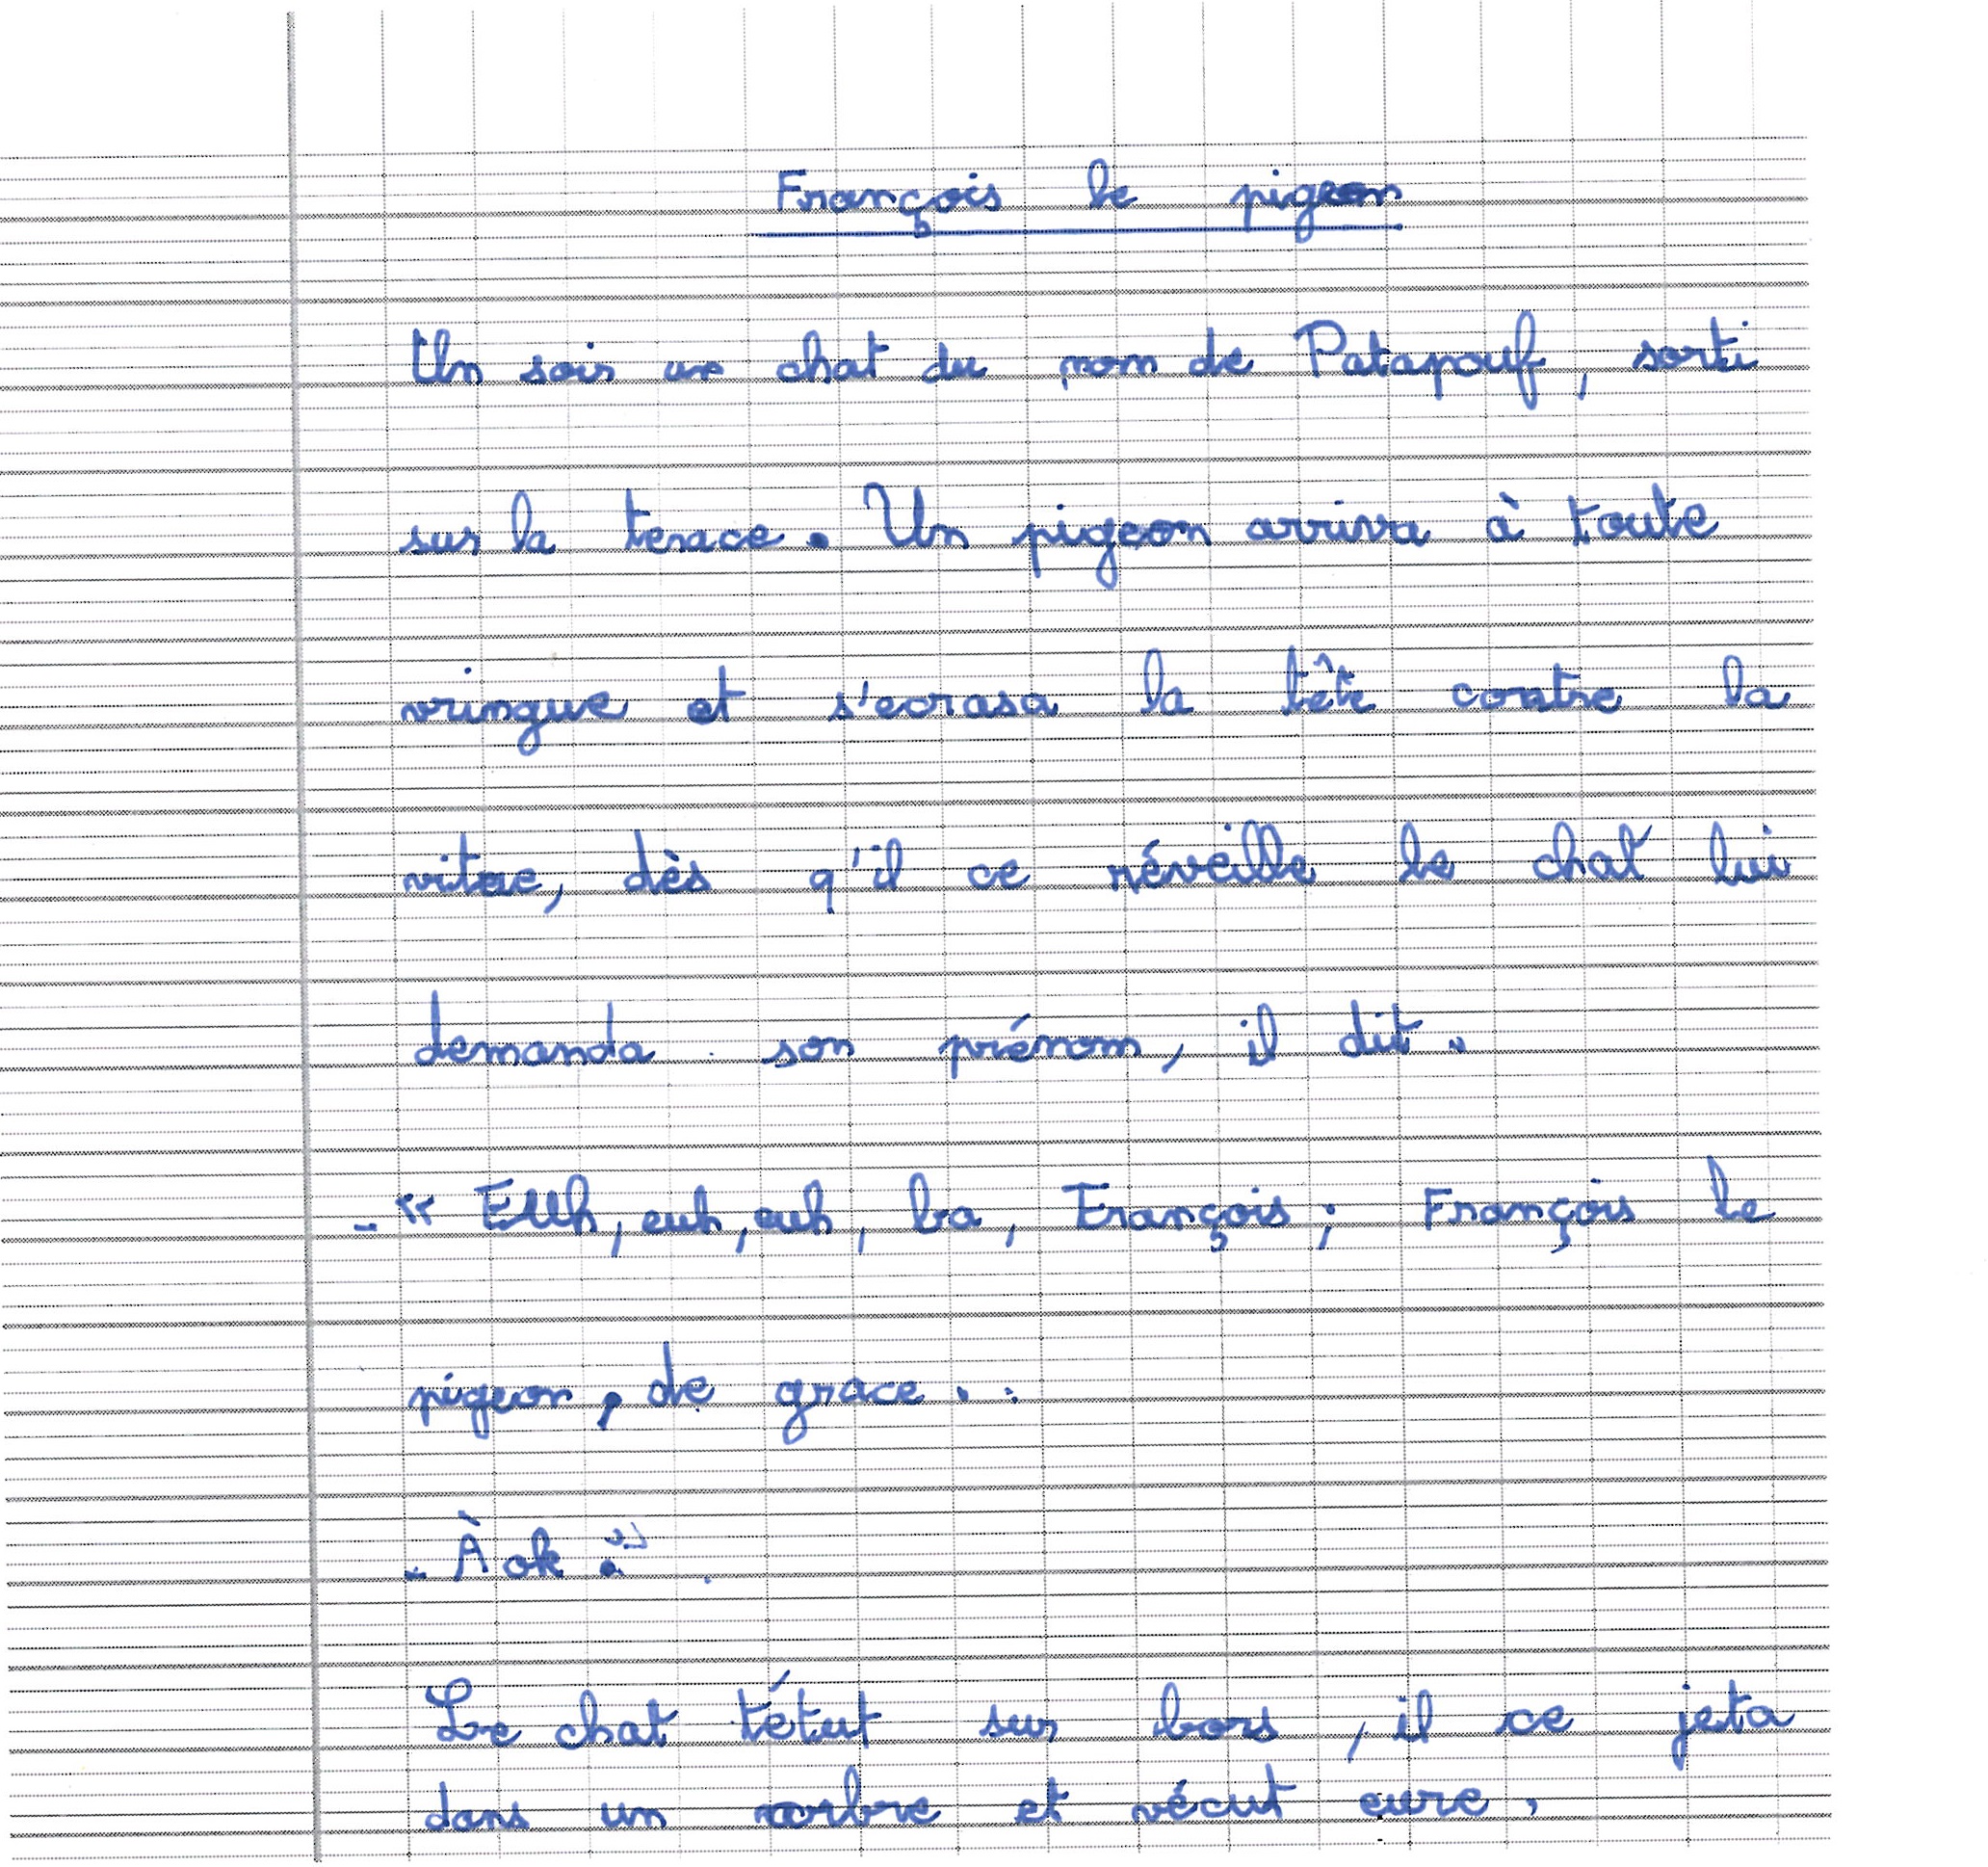 François le pigeon
Un soir un chat du nom de Patapouf, sorti
sur la terace. Un pigeon arriva à toute
vringue et s'ecrasa la tête contre la
vitre, dès q'il ce réveille le chat lui
demanda son prénom, il dit.
-" Euh, euh, euh, ba, François; François le
pigeon, de grace..
- À ok."
Le chat tétut sur bors, il ce jeta
dans un arbre et vécut eure.